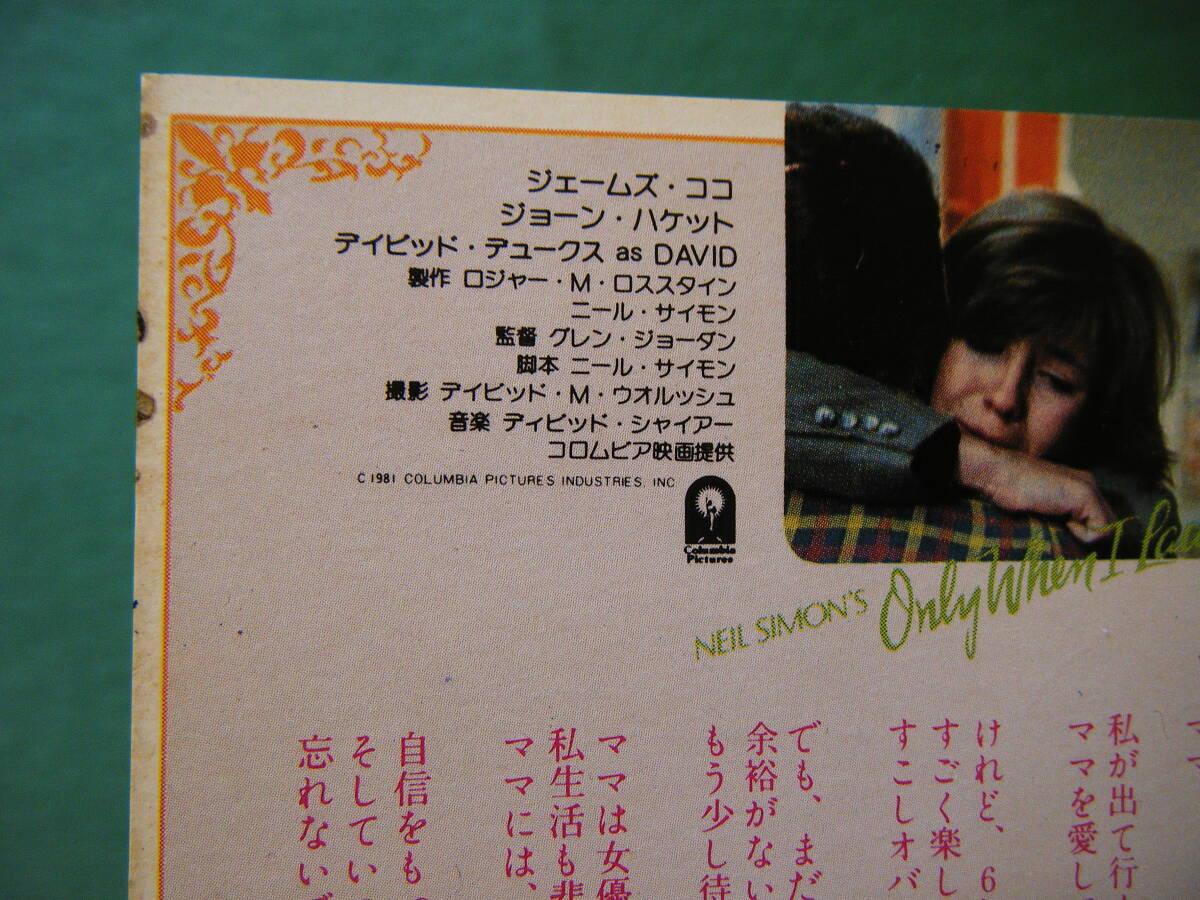 ジェームズ・ココ
ジョーン・ハケット
デイビッド・デュークス as DAVID
製作 ロジャー・M・ロススタイン
ニール・サイモン
監督 グレン・ジョーダン
脚本 ニール・サイモン
撮影 デイビッド・M・ウオルッシュ
音楽 ディビッド・シャイアー
コロムビア映画提供
C 1981 COLUMBIA PICTURES INDUSTRIES, INC
Columbia
Pictures
NEIL SIMON'S Only When I Lau
ママ
私が出て行
ママを愛し
けれど、6
すごく楽し
すこしオバ
でも、まだ
余裕がない
もう少し待
ママは女優
私生活も悲
ママには、
自信をも
そしてい
忘れないで